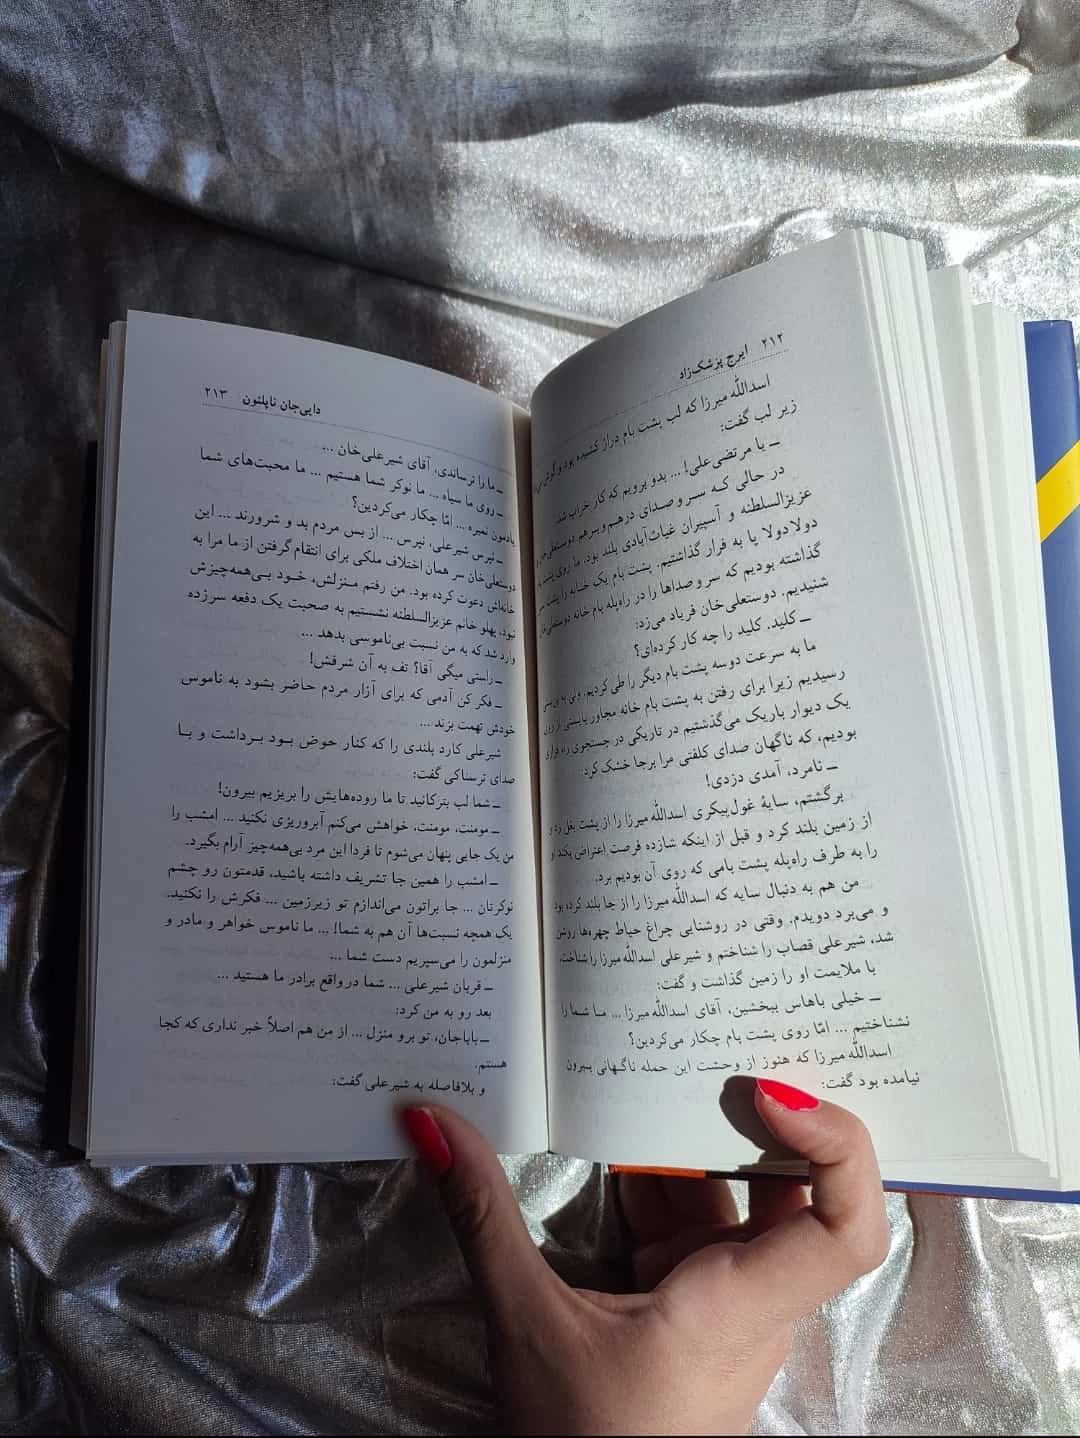 ۲۱۲ ایرج پزشک‌زاد
اسدالله میرزا که لب پشت بام دراز کشیده بود و گوش
زیر لب گفت:
ـ یا مرتضی‌علی! ... بدو برویم که کار خراب شد.
در حالی که سر و صدای درهم و برهم دوستعلی‌خان و
عزیزالسلطنه و آسپیران غیاث‌آبادی بلند بود، ما روی پشت
دولادولا پا به فرار گذاشتیم. پشت بام یک خانه را پشت سر
گذاشته بودیم که سر و صداها را در راه‌پله بام خانه دوستعلی‌خان
شنیدیم. دوستعلی‌خان فریاد می‌زد:
ـ کلید. کلید را چه کار کرده‌ای؟
ما به سرعت دوسه پشت بام دیگر را طی کردیم. ولی به
رسیدیم زیرا برای رفتن به پشت بام خانه مجاور بایستی از روی
یک دیوار باریک می‌گذشتیم در تاریکی در جستجوی راه
بودیم، که ناگهان صدای کلفتی مرا برجا خشک کرد:
ـ نامرد، آمدی دزدی!
برگشتم، سایهٔ غول‌پیکری اسدالله میرزا را از پشت بغل زد و
از زمین بلند کرد و قبل از اینکه شازده فرصت اعتراض بکند او
را به طرف راه‌پله پشت بامی که روی آن بودیم برد.
من هم به دنبال سایه که اسدالله میرزا را از جا بلند کرده بود
و می‌برد دویدم. وقتی در روشنایی چراغ حیاط چهره‌ها روشن
شد، شیرعلی قصاب را شناختم و شیرعلی اسدالله میرزا را شناخت،
با ملایمت او را زمین گذاشت و گفت:
ـ خیلی باهاس ببخشین، آقای اسدالله میرزا ... ما شما را
نشناختیم ... امّا روی پشت بام چکار می‌کردین؟
اسدالله میرزا که هنوز از وحشت این حمله ناگهانی بیرون
نیامده بود گفت:
دایی‌جان ناپلئون ۲۱۳
ـ ما را ترساندی، آقای شیرعلی‌خان ...
ـ روی ما سیاه ... ما نوکر شما هستیم ... ما محبت‌های شما
یادمون نمیره ... امّا چکار می‌کردین؟
ـ نپرس شیرعلی، نپرس ... از بس مردم بد و شرورند ... این
دوستعلی‌خان سر همان اختلاف ملکی برای انتقام گرفتن از ما مرا به
خانه‌اش دعوت کرده بود. من رفتم منزلش، خود بی‌همه‌چیزش
نبود، پهلو خانم عزیزالسلطنه نشستیم به صحبت یک دفعه سرزده
وارد شد که به من نسبت بی‌ناموسی بدهد ...
ـ راستی میگی آقا؟ تف به آن شرفش!
ـ فکر کن آدمی که برای آزار مردم حاضر بشود به ناموس
خودش تهمت بزند ...
شیرعلی کارد بلندی را که کنار حوض بود برداشت و با
صدای ترسناکی گفت:
ـ شما لب بترکانید تا ما روده‌هایش را بریزیم بیرون!
ـ مومنت، مومنت، خواهش می‌کنم آبروریزی نکنید ... امشب را
من یک جایی پنهان می‌شوم تا فردا این مرد بی‌همه‌چیز آرام بگیرد.
ـ امشب را همین جا تشریف داشته باشید، قدمتون رو چشم
نوکرتان ... جا براتون می‌اندازم تو زیرزمین ... فکرش را نکنید.
یک همچه نسبت‌ها آن هم به شما! ... ما ناموس خواهر و مادر و
منزلمون را می‌سپریم دست شما ...
ـ قربان شیرعلی ... شما در واقع برادر ما هستید ...
بعد رو به من کرد:
ـ باباجان، تو برو منزل ... از من هم اصلاً خبر نداری که کجا
هستم.
و بلافاصله به شیرعلی گفت: